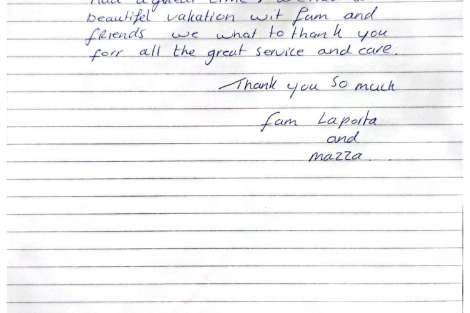 had a great time,
beautifel vakation wit fam and
friends we what to thank you
forr all the great service and care.
Thank you so much
fam Laporta
and
mazza